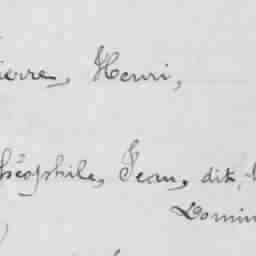 ierre, Henri,
héophile, Jean, dit,
Domin